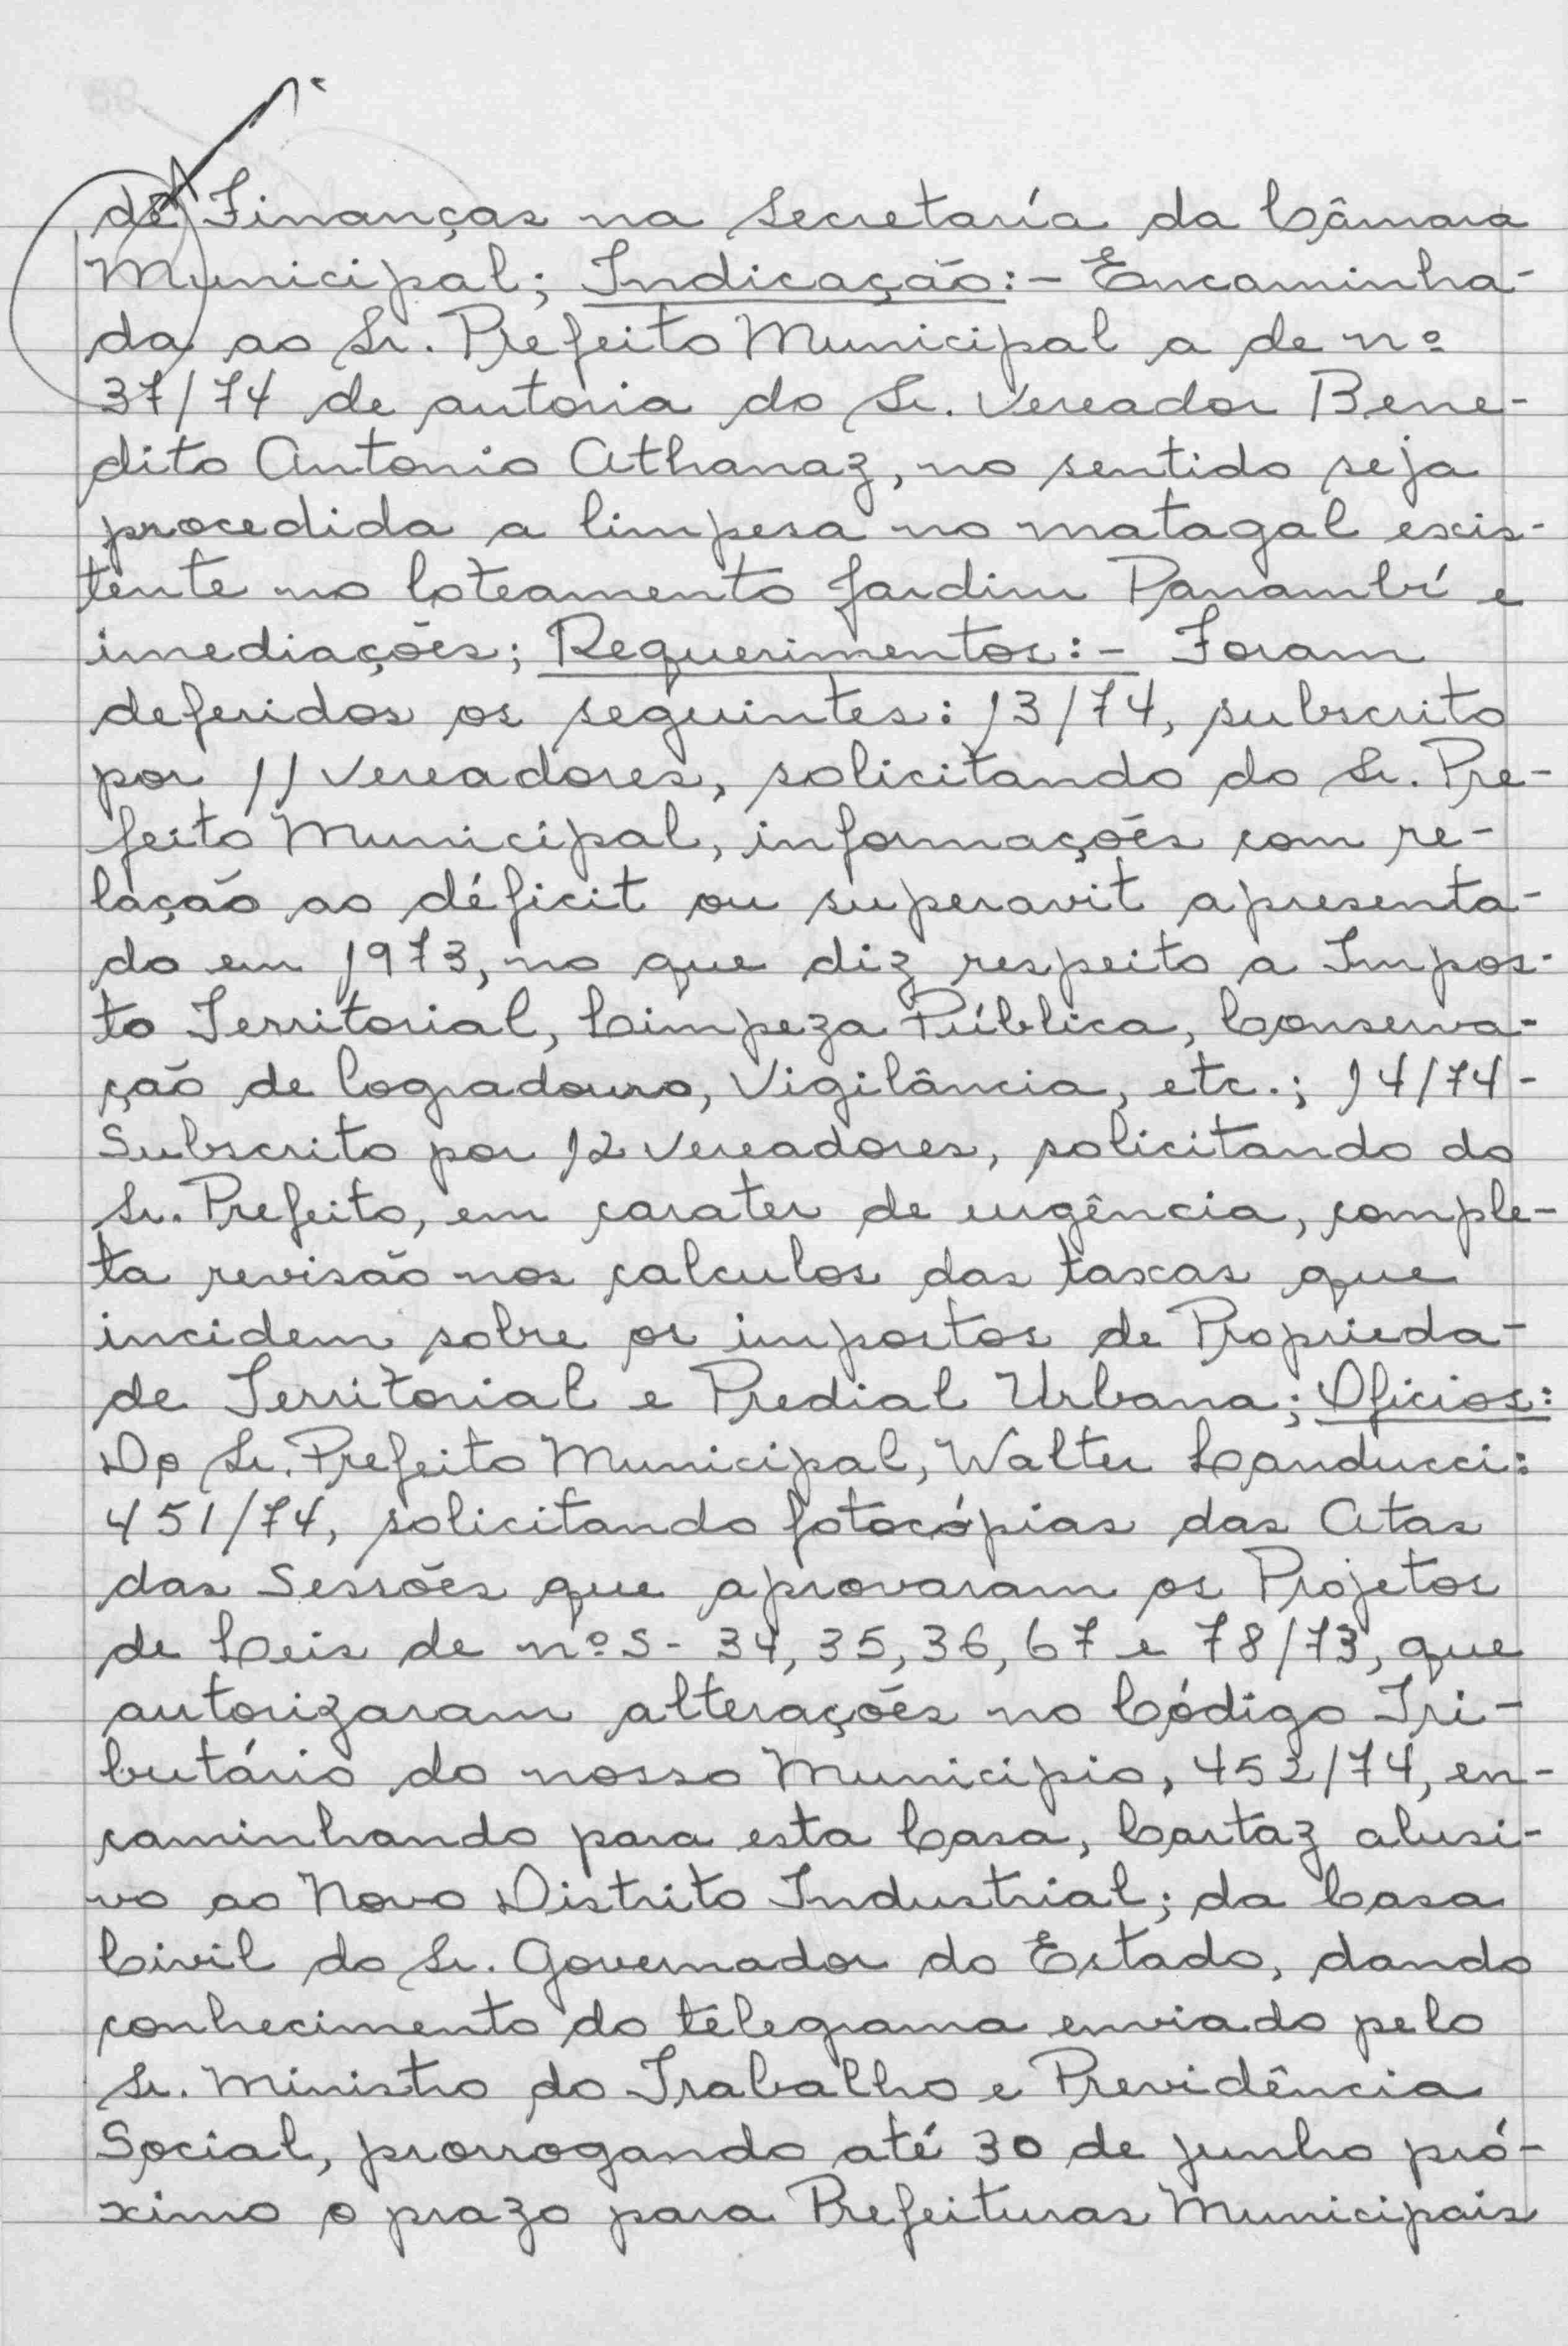 de Finanças na Secretaría da Câmara
Municipal; Indicação:- Encaminha-
da ao Sr. Prefeito Municipal a de nº
37/74 de autoria do Sr. Vereador Bene-
dito Antonio Athanaz, no sentido seja
procedida a limpesa no matagal exis-
tente no loteamento Jardim Panambí e
imediações; Requerimentos:- Foram
deferidos os seguintes: 13/74, subscrito
por 11 Vereadores, solicitando do Sr. Pre-
feito Municipal, informações com re-
lação ao déficit ou superavit apresenta-
do em 1973, no que diz respeito a Impos-
to Territorial, Limpeza Pública, Conserva-
ção de Logradouro, Vigilância, etc.; 14/74-
Subscrito por 12 Vereadores, solicitando do
Sr. Prefeito, em carater de urgência, comple-
ta revisão nos calculos das taxas que
incidem sobre os impostos de Proprieda-
de Territorial e Predial Urbana; Oficios:
Do Sr. Prefeito Municipal, Walter Canducci:
451/74, solicitando fotocópias das Atas
das Sessões que aprovaram os Projetos
de Leis de nºs- 34, 35, 36, 67 e 78/73, que
autorizaram alterações no Código Tri-
butário do nosso Municipio, 452/74, en-
caminhando para esta Casa, Cartaz alusi-
vo ao Novo Distrito Industrial; da Casa
Civil do Sr. Governador do Estado, dando
conhecimento do telegrama enviado pelo
Sr. Ministro do Trabalho e Previdência
Social, prorrogando até 30 de junho pró-
ximo o prazo para Prefeituras Municipais